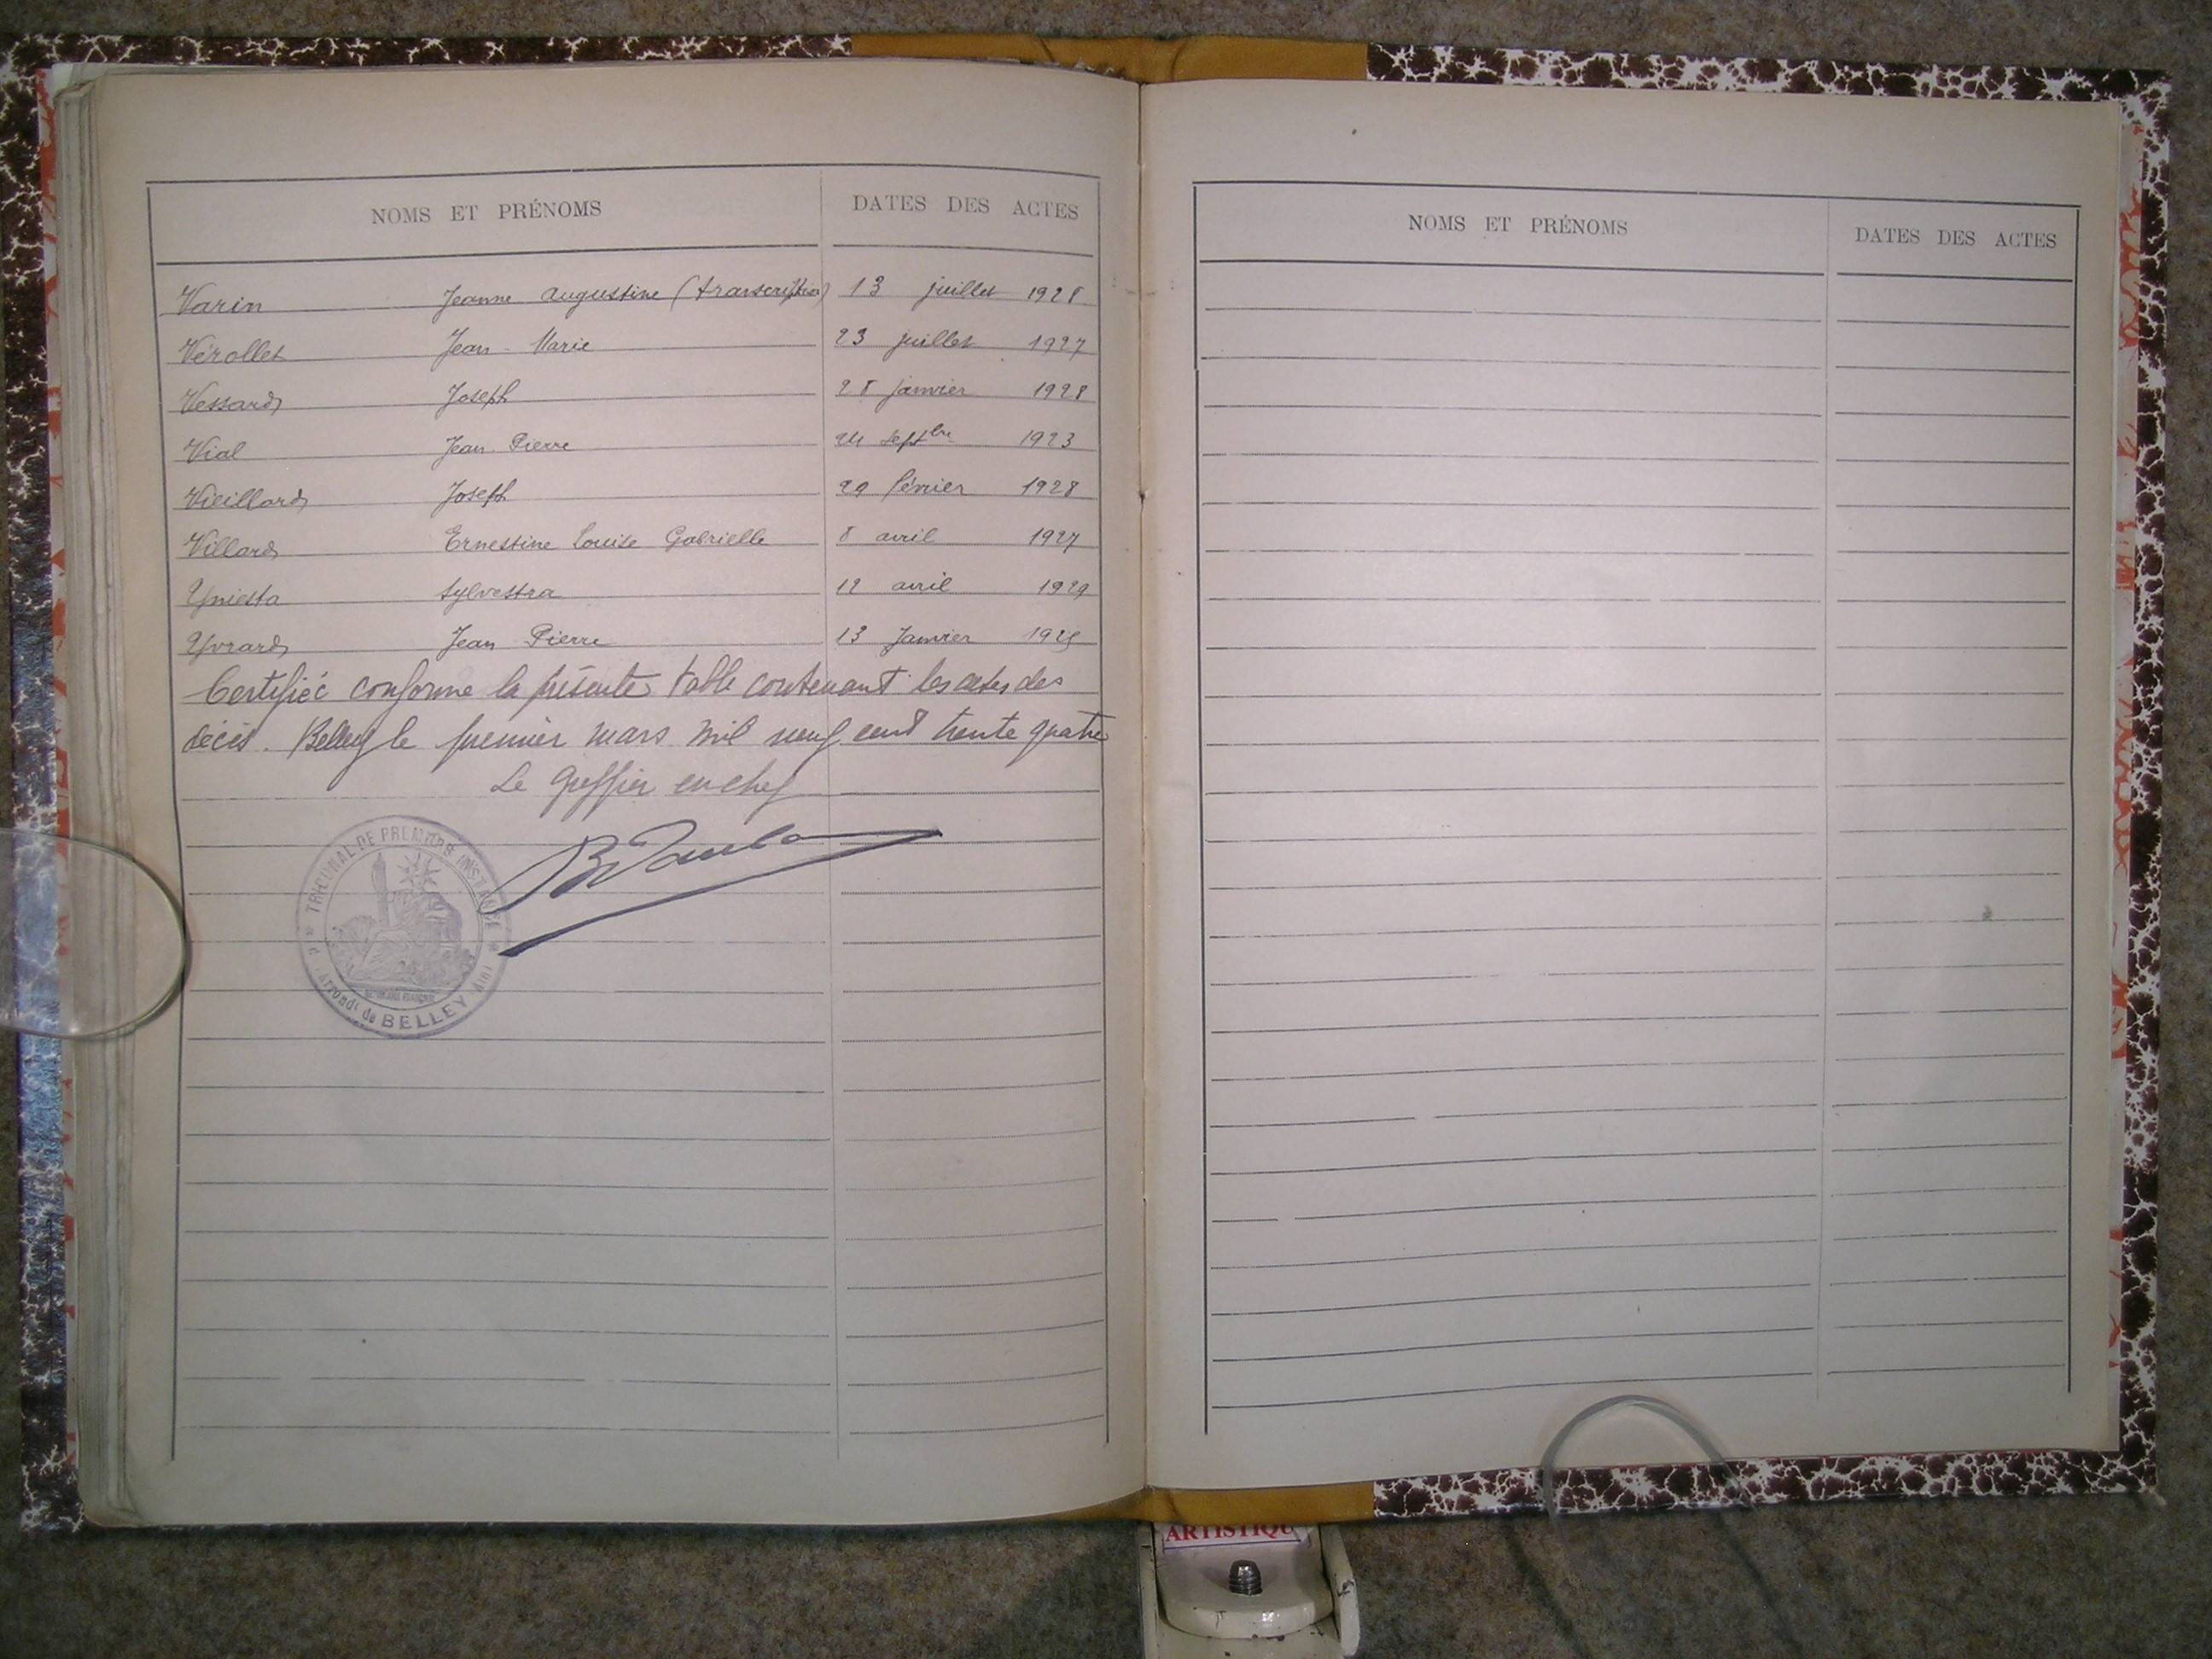 NOMS ET PRÉNOMS DATES DES ACTES
Varin Jeanne Augustine (transcription) 13 juillet 1928
Vérollet Jean-Marie 23 juillet 1927
Vessard Joseph 28 janvier 1928
Vial Jean-Pierre 24 septbre 1923
Vieillard Joseph 29 février 1928
Villard Ernestine Louise Gabrielle 8 avril 1927
Yniesta Sylvestra 12 avril 1929
Yvrard Jean Pierre 13 Janvier
Certifiée conforme la présente table contenant les actes des
décès. Belley le premier mars mil neuf cent trente quatre
Le Greffier en chef
TRIBUNAL DE PREMIERE INSTANCE
Arrondt de BELLEY (Ain)
NOMS ET PRÉNOMS DATES DES ACTES
ARTISTIQU